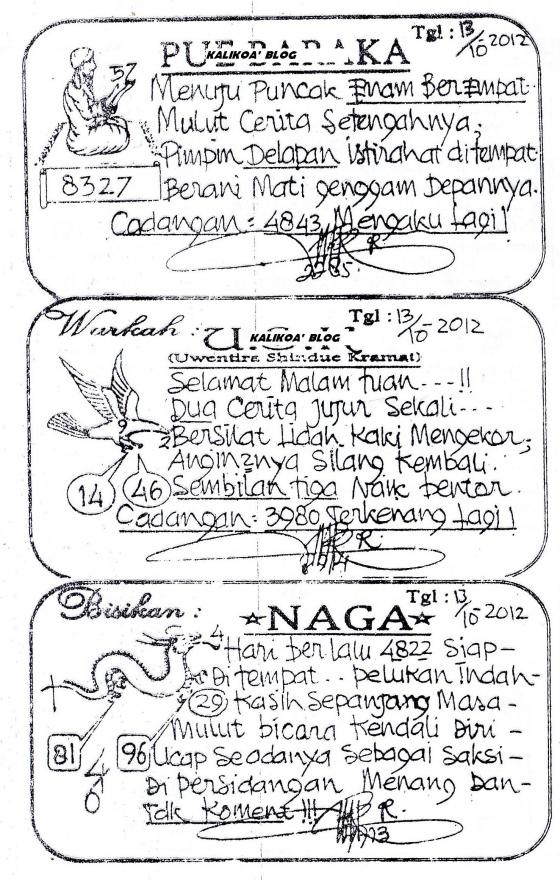 Tgl : 13/10 2012
KALIKOA' BLOG
57
Menuju Puncak Enam Berempat.
Mulut Cerita Setengahnya;
Pimpin Delapan istirahat ditempat
8327
Berani Mati genggam Depannya.
Cadangan : 4843 Mengaku Lagi!
R
Warkah :
Tgl : 13/10-2012
KALIKOA' BLOG
(Uwentira Shinduc Kramat)
Selamat Malam tuan ---!!
Dua Cerita jujur Sekali---
Bersilat Lidah Kaki Mengekor;
Angin2nya Silang Kembali.
14
46
Sembilan tiga Naik bentor.
Cadangan : 3980 Terkenang Lagi!
R.
Bisikan :
Tgl : 13/10 2012
☆NAGA☆
4
Hari berlalu 4822 Siap-
Ditempat.. pelukan Indah-
29 Kasih Sepanjang Masa-
Mulut bicara Kendali Diri-
81
96
Ucap Seadanya Sebagai Saksi-
40
Di Persidangan Menang Dan-
Tdk Koment!!!
R.